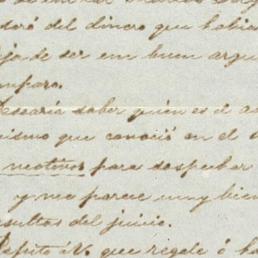 deró del dinero que habia
ja de ser un buen argu
mpara.
esearia saber quien es el a
mismo que conoció en el
motivos para sospechar
y me parece muy bien
sultas del juicio.
que regale ó ha